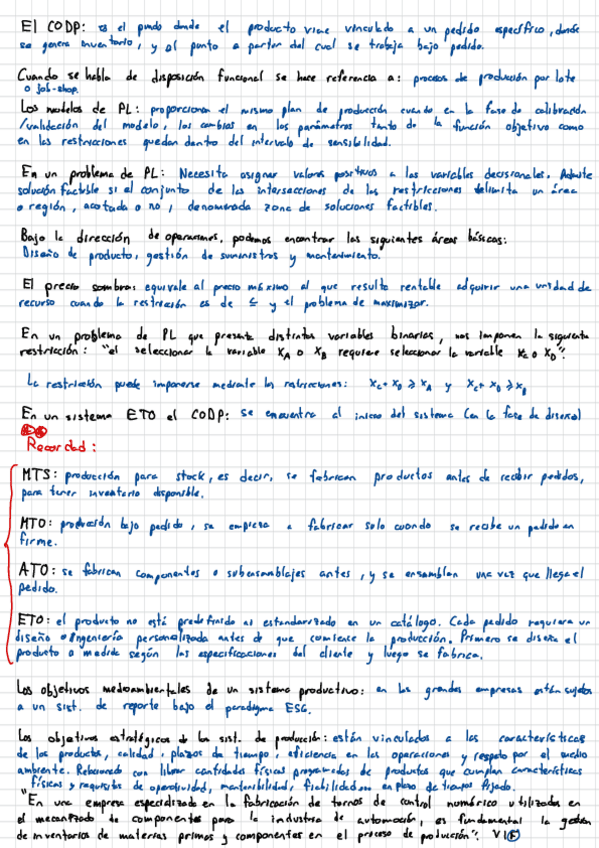 El CODP: es el punto donde el producto viene vinculado a un pedido específico, donde
se genera inventario, y el punto a partir del cual se trabaja bajo pedido.
Cuando se habla de disposición funcional se hace referencia a: procesos de producción por lote
o job-shop.
Los modelos de PL: proporcionan el mismo plan de producción cuando en la fase de calibración
/validación del modelo, los cambios en los parámetros tanto de la función objetivo como
en las restricciones quedan dentro del intervalo de sensibilidad.
En un problema de PL: Necesita asignar valores positivos a las variables decisionales. Admite
solución factible si el conjunto de las intersecciones de las restricciones delimita un área
o región, acotada o no, denominada zona de soluciones factibles.
Bajo la dirección de operaciones, podemos encontrar las siguientes áreas básicas:
Diseño de producto, gestión de suministros y mantenimiento.
El precio sombra: equivale al precio máximo al que resulta rentable adquirir una unidad de
recurso cuando la restricción es de ≤ y el problema de maximizar.
En un problema de PL que presenta distintas variables binarias, nos imponen la siguiente
restricción: "el seleccionar la variable XA o XB requiere seleccionar la variable XC o XD".
La restricción puede imponerse mediante las restricciones: XC+XD ≥ XA y XC+XD ≥ XB
En un sistema ETO el CODP: se encuentra al inicio del sistema (en la fase de diseño)
Recordad:
MTS: producción para stock, es decir, se fabrican productos antes de recibir pedidos,
para tener inventario disponible.
MTO: producción bajo pedido, se empieza a fabricar solo cuando se recibe un pedido en
firme.
ATO: se fabrican componentes o subensamblajes antes, y se ensamblan una vez que llega el
pedido.
ETO: el producto no está predefinido ni estandarizado en un catálogo. Cada pedido requiere un
diseño e ingeniería personalizada antes de que comience la producción. Primero se diseña el
producto a medida según las especificaciones del cliente y luego se fabrica.
Los objetivos medioambientales de un sistema productivo: en las grandes empresas están sujetos
a un sist. de reporte bajo el paradigma ESG.
Los objetivos estratégicos de los sist. de producción: están vinculados a las características
de los productos, calidad, plazos de tiempo, eficiencia en las operaciones y respeto por el medio
ambiente. Relacionado con librar cantidades físicas programadas de productos que cumplan características
físicas y requisitos de operatividad, mantenibilidad, fiabilidad en plazo de tiempo fijado.
"En una empresa especializada en la fabricación de tornos de control numérico utilizados en
el mecanizado de componentes para la industria de automoción, es fundamental la gestión
de inventarios de materias primas y componentes en el proceso de producción". V/F